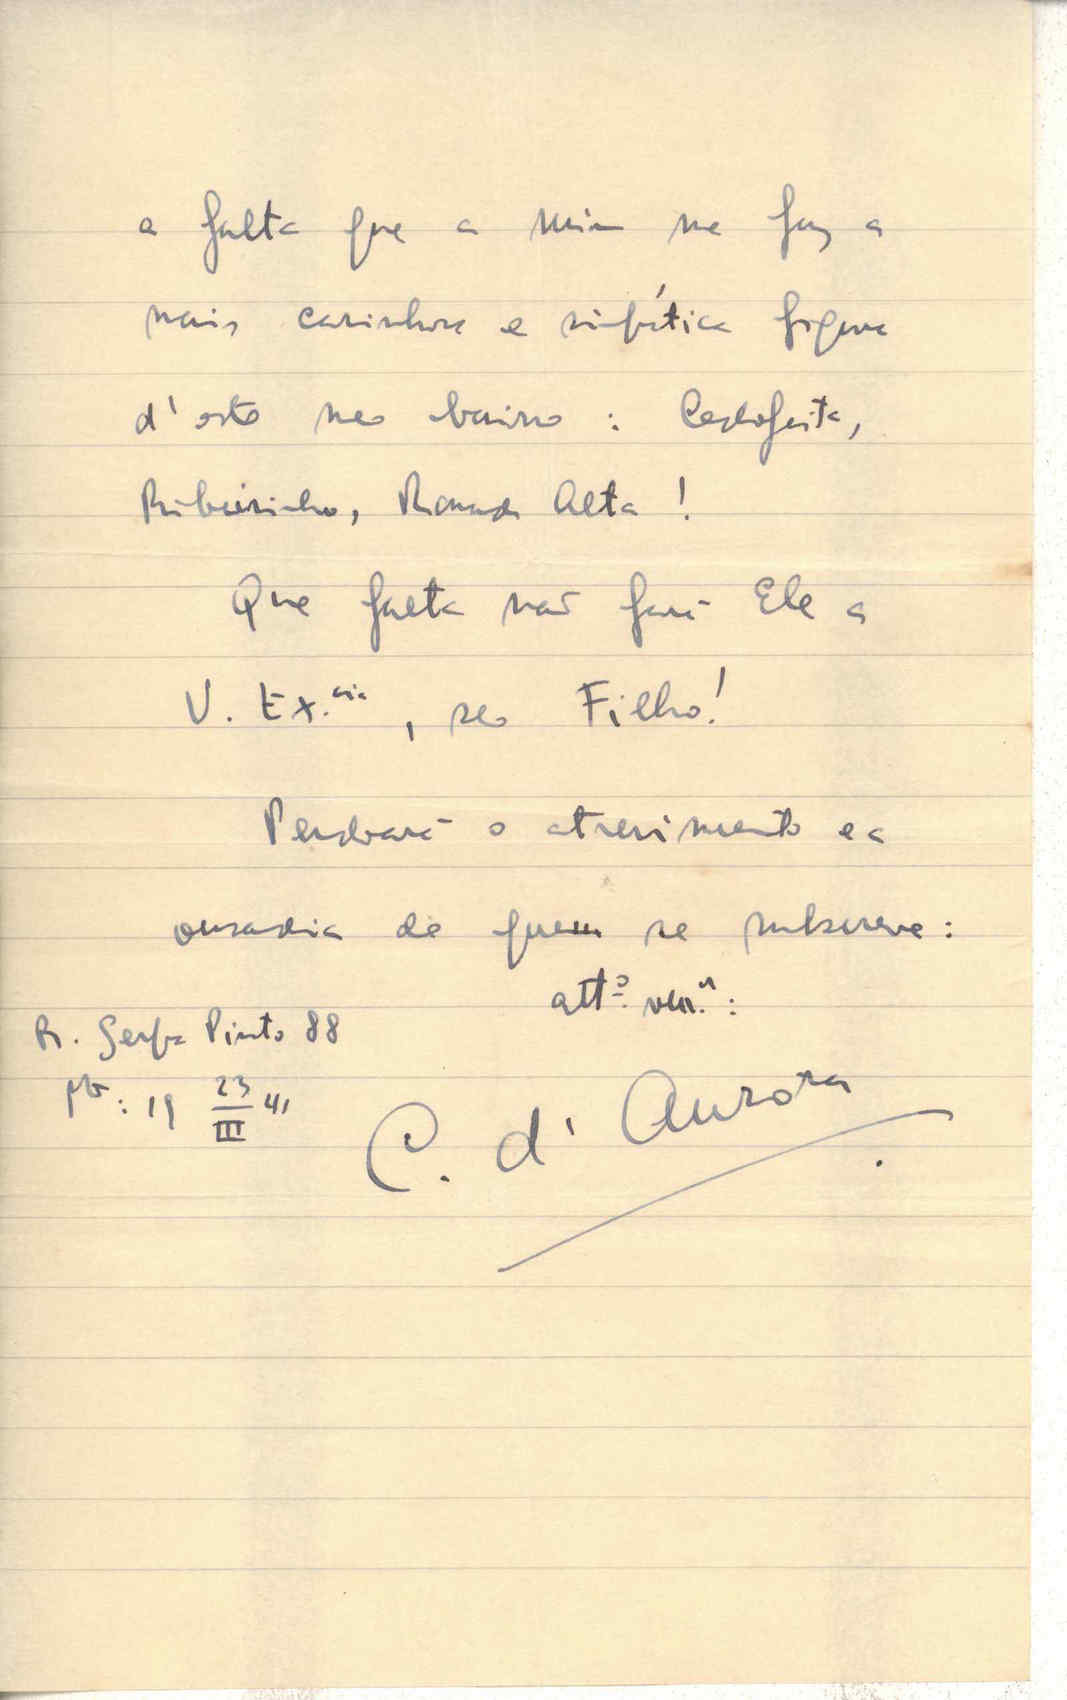 a falta que a mim me faz a
mais carinhosa e simpática figura
d'este meo bairro: Cedofeita,
Ribeirinho, Ramada Alta!
Que falta não fará Ele a
V. Ex.cia, seo Filho!
Perdoará o atrevimento e a
ousadia de quem se subscreve:
attº. ven.or:
R. Serpa Pinto 88
Pto: 19 23/III 41
C. d'Aurora.